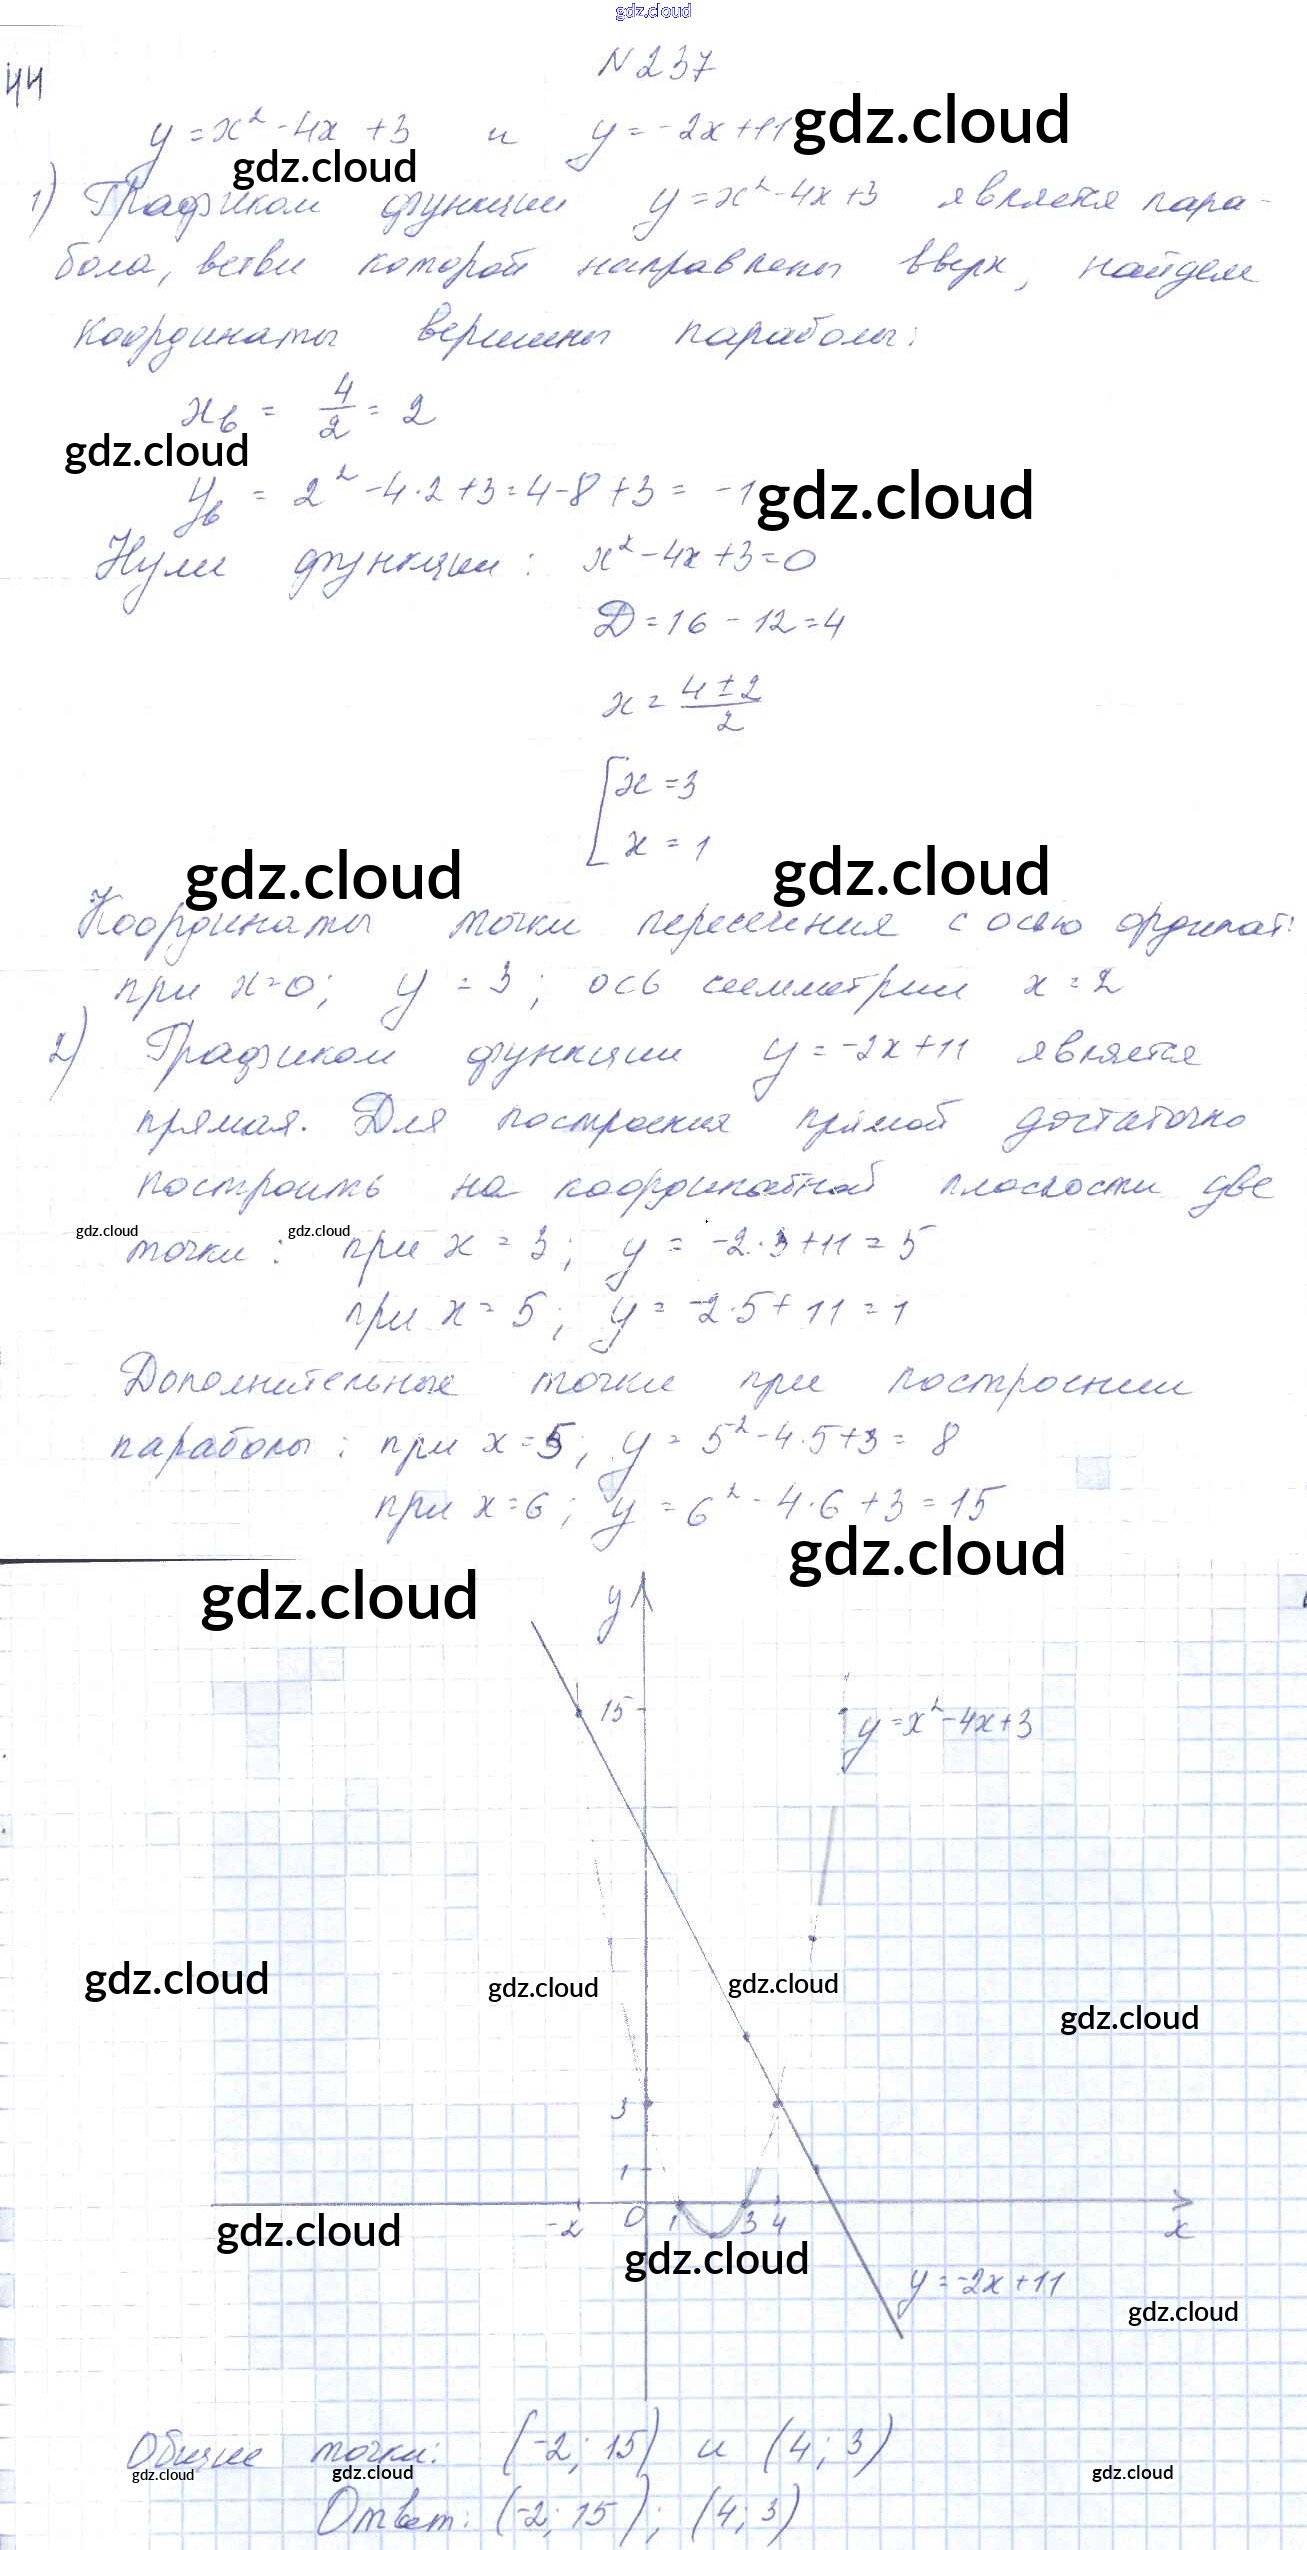 gdz.cloud
44
N 237
y = x² - 4x + 3 и y = -2x + 11 gdz.cloud
gdz.cloud
1) Графиком функции y = x² - 4x + 3 является пара-
бола, ветви которой направлены вверх, найдем
координаты вершины параболы:
xв = 4/2 = 2
gdz.cloud
yв = 2² - 4·2 + 3 = 4 - 8 + 3 = -1 gdz.cloud
Нули функции: x² - 4x + 3 = 0
D = 16 - 12 = 4
x = (4 ± 2)/2
[ x = 3
x = 1
gdz.cloud gdz.cloud
Координаты точки пересечения с осью ординат:
при x = 0; y = 3; ось симметрии x = 2
2) Графиком функции y = -2x + 11 является
прямая. Для построения прямой достаточно
построить на координатной плоскости две
gdz.cloud gdz.cloud
точки: при x = 3; y = -2·3 + 11 = 5
при x = 5; y = -2·5 + 11 = 1
Дополнительные точки при построении
параболы: при x = 5; y = 5² - 4·5 + 3 = 8
при x = 6; y = 6² - 4·6 + 3 = 15
gdz.cloud
gdz.cloud y
15 y = x² - 4x + 3
gdz.cloud gdz.cloud gdz.cloud
gdz.cloud
3
1
-2 0 1 3 4 x
gdz.cloud
gdz.cloud
y = -2x + 11
gdz.cloud
Общие точки: (-2; 15) и (4; 3)
gdz.cloud gdz.cloud gdz.cloud
Ответ: (-2; 15); (4; 3)